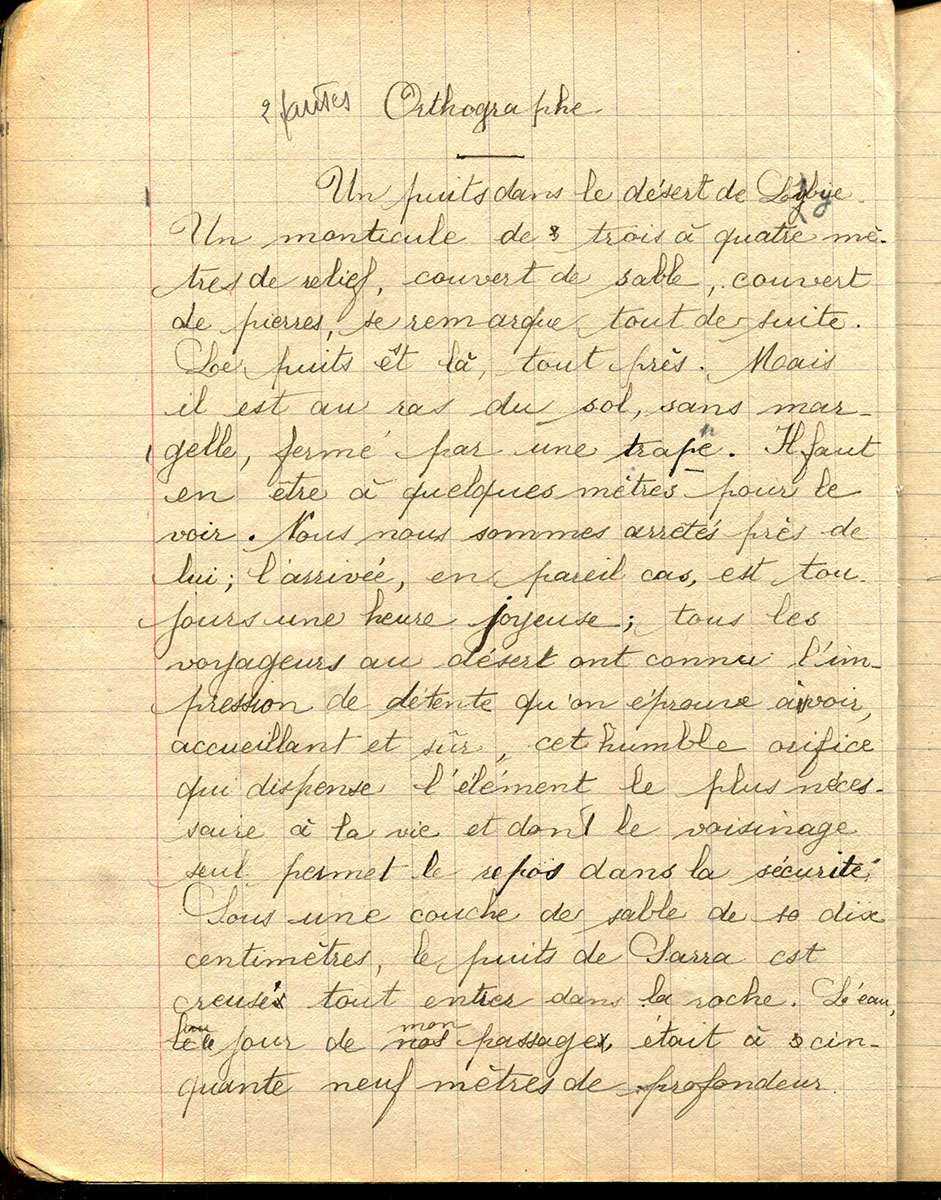 2 fautes Orthographe
Un puits dans le désert de Lybie.
Un monticule de trois à quatre mè-
tres de relief, couvert de sable, couvert
de pierres, se remarque tout de suite.
Le puits est là, tout près. Mais
il est au ras du sol, sans mar-
gelle, fermé par une trape. Il faut
en être à quelques mètres pour le
voir. Nous nous sommes arrêtés près de
lui; l'arrivée, en pareil cas, est tou-
jours une heure joyeuse; tous les
voyageurs au désert ont connu l'im-
pression de détente qu'on éprouve à voir,
accueillant et sûr, cet humble orifice
qui dispense l'élément le plus néces-
saire à la vie et dont le voisinage
seul permet le repos dans la sécurité.
Sous une couche de sable de dix
centimètres, le puits de Sarra est
creusé tout entier dans la roche. L'eau,
au
mon
le jour de nos passage, était à cin-
quante neuf mètres de profondeur